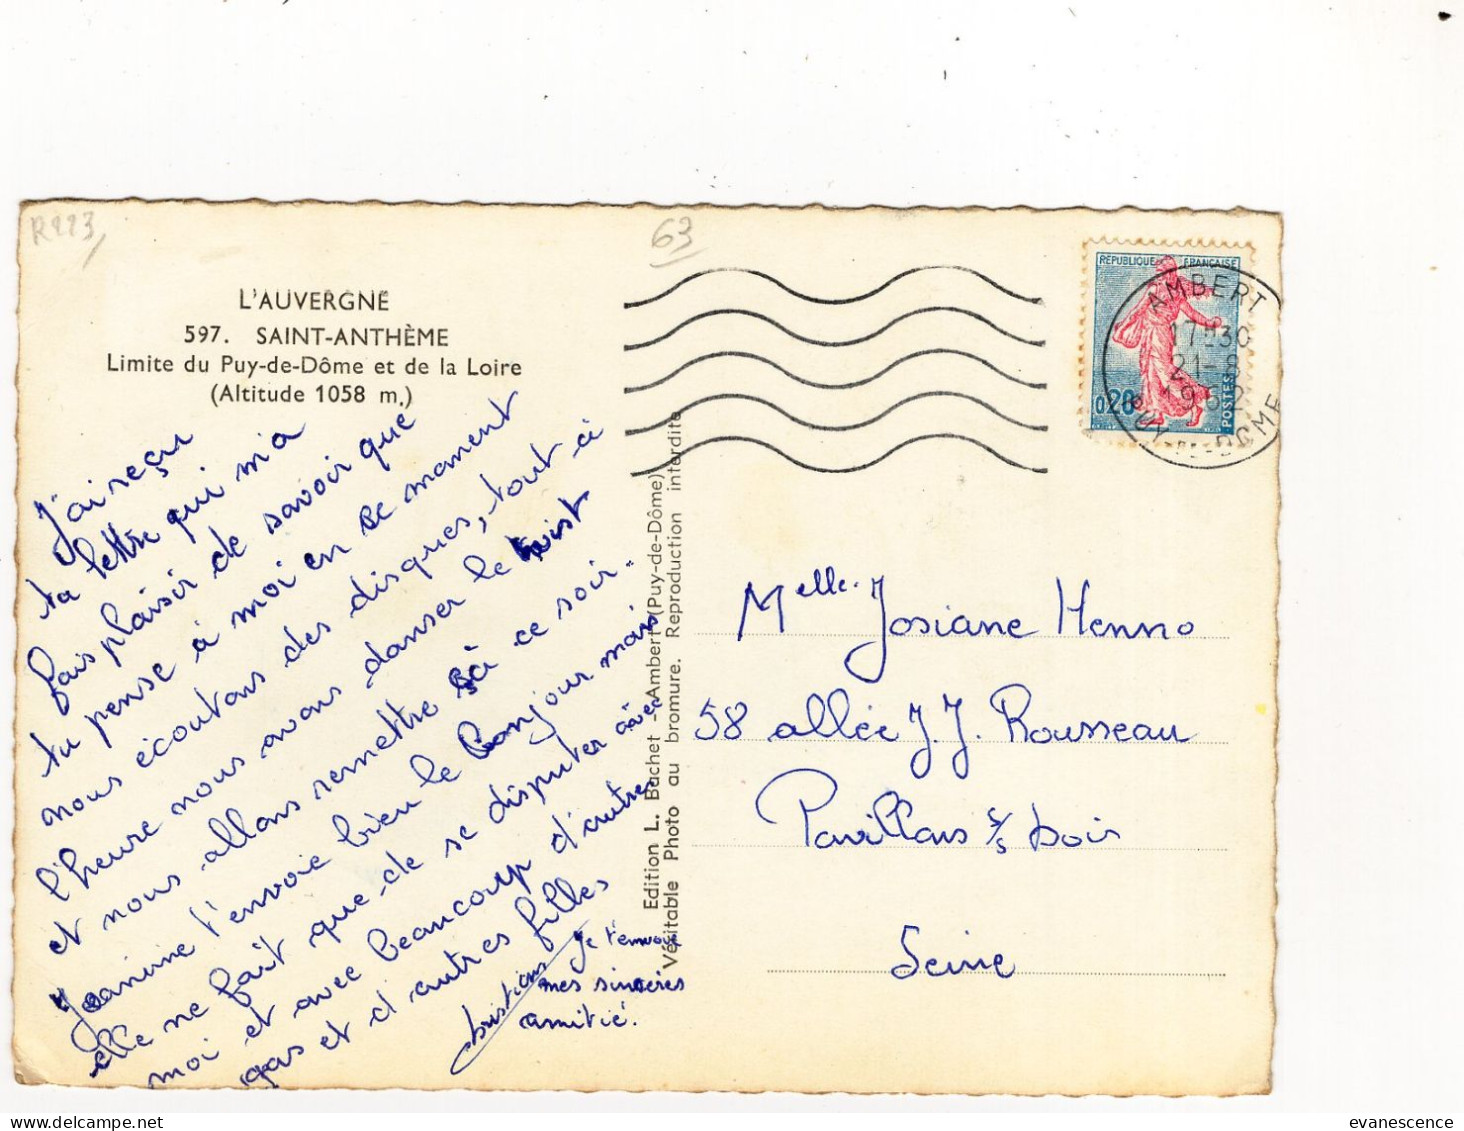 R223
63
L'AUVERGNE
597. SAINT-ANTHÈME
Limite du Puy-de-Dôme et de la Loire
(Altitude 1058 m.)
RÉPUBLIQUE FRANÇAISE
0,20
POSTES
AMBERT
17H30
21-8
1962
PUY-DE-DOME
J'ai reçu
ta lettre qui m'a
fais plaisir de savoir que
tu pense à moi en ce moment
nous écoutons des disques, tout-à
l'heure nous avons danser le twist
et nous allons remettre çà ce soir.
Jeannine t'envoie bien le bonjour mais
elle ne fait que de se disputer avec
moi et avec beaucoup d'autres
gas et d'autres filles
Je t'envoie
mes sincères
amitié.
Christians
Edition L. Bachet - Ambert (Puy-de-Dôme)
Véritable Photo au bromure. Reproduction interdite
Melle. Josiane Henno
58 allée J.J. Rousseau
Pavillons s/s bois
Seine
evanescence